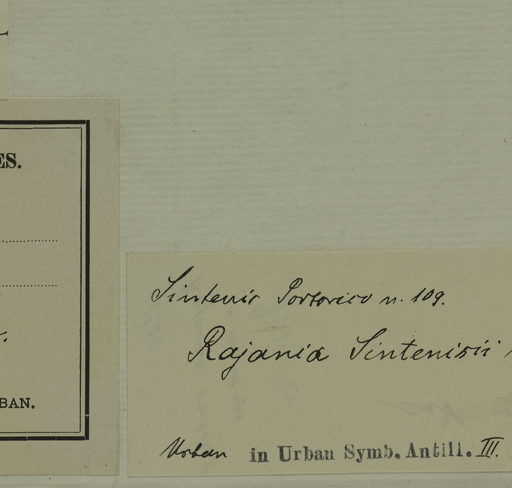 ES.
BAN.
Sintenis Portorico n. 109.
Rajania Sintenisii
Urban in Urban Symb. Antill. III.